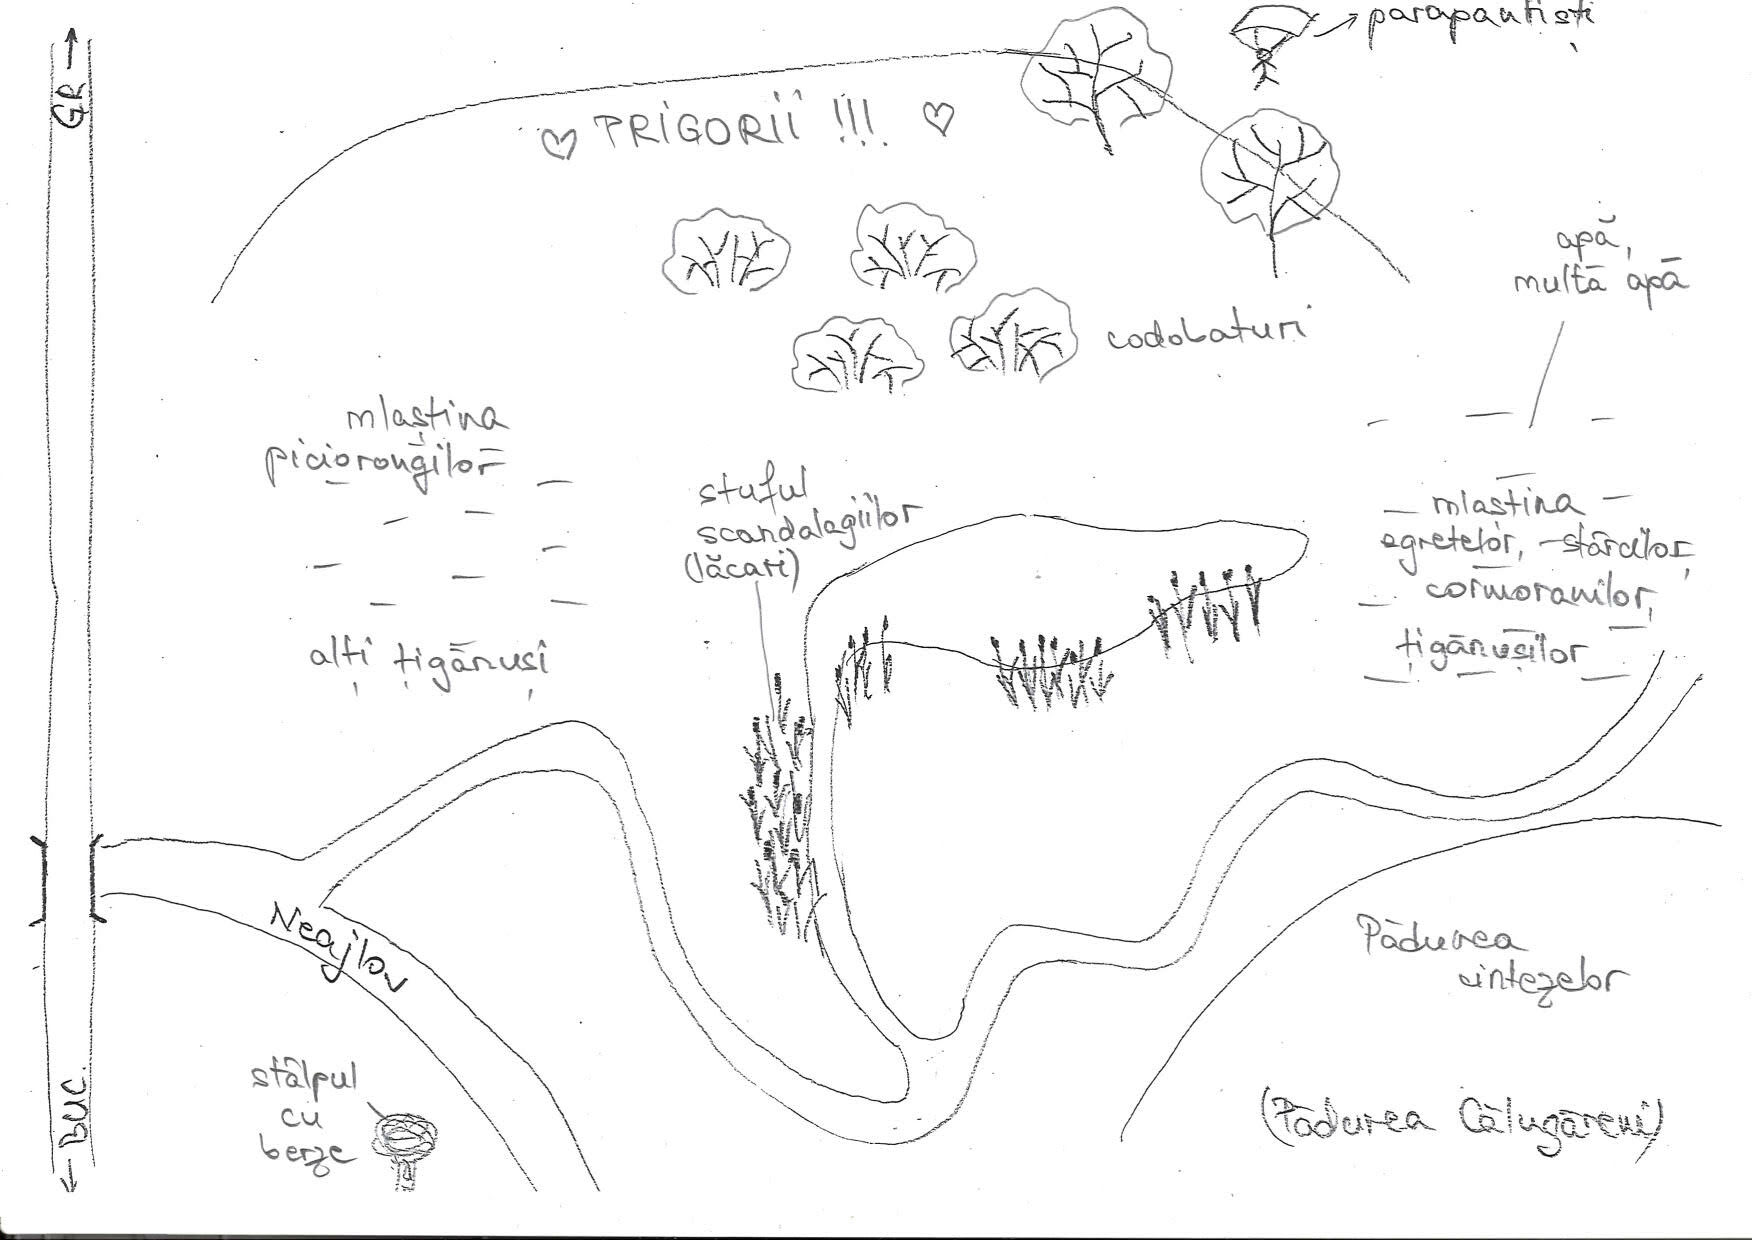 parapantiști
GR →
PRIGORII !!!
apă,
multă apă
codobaturi
mlaștina
piciorongilor
stuful
scandalagiilor
(lăcari)
mlaștina
egretelor, stârcilor,
cormoranilor,
țigănușilor
alți țigănuși
Neajlov
Pădurea
cintezelor
stâlpul
cu
berze
← BUC.
(Pădurea Călugăreni)